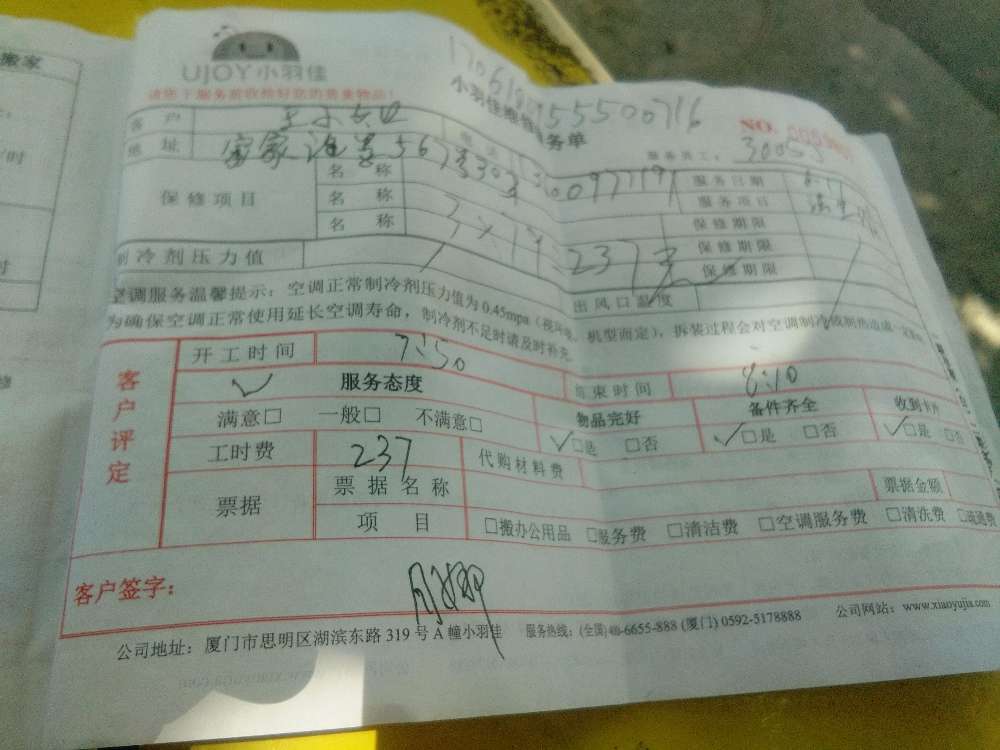 搬家
UJOY小羽佳
请您于服务前收捡好您的贵重物品！
小羽佳维修服务单
NO.
服务员工：30053
客户
地址
567号303
服务日期
保修项目
名称
服务项目
名称
保修期限
名称
保修期限
237元
保修期限
制冷剂压力值
出风口温度
空调服务温馨提示：空调正常制冷剂压力值为0.45mpa（视环境、机型而定），拆装过程会对空调制冷或制热造成一定
为确保空调正常使用延长空调寿命，制冷剂不足时请及时补充
客户评定
开工时间 7:50
结束时间 8:10
服务态度
物品完好
备件齐全
满意□ 一般□ 不满意□
□是 □否
□是 □否
□是 □否
工时费 237
代购材料费
票据
票据名称
票据金额
项目
□搬办公用品 □服务费 □清洁费 □空调服务费 □清洗费 □疏通费
客户签字：
公司地址：厦门市思明区湖滨东路319号A幢小羽佳 服务热线：(全国)400-6655-888 (厦门) 0592-5178888 公司网站：www.xiaoyujia.com